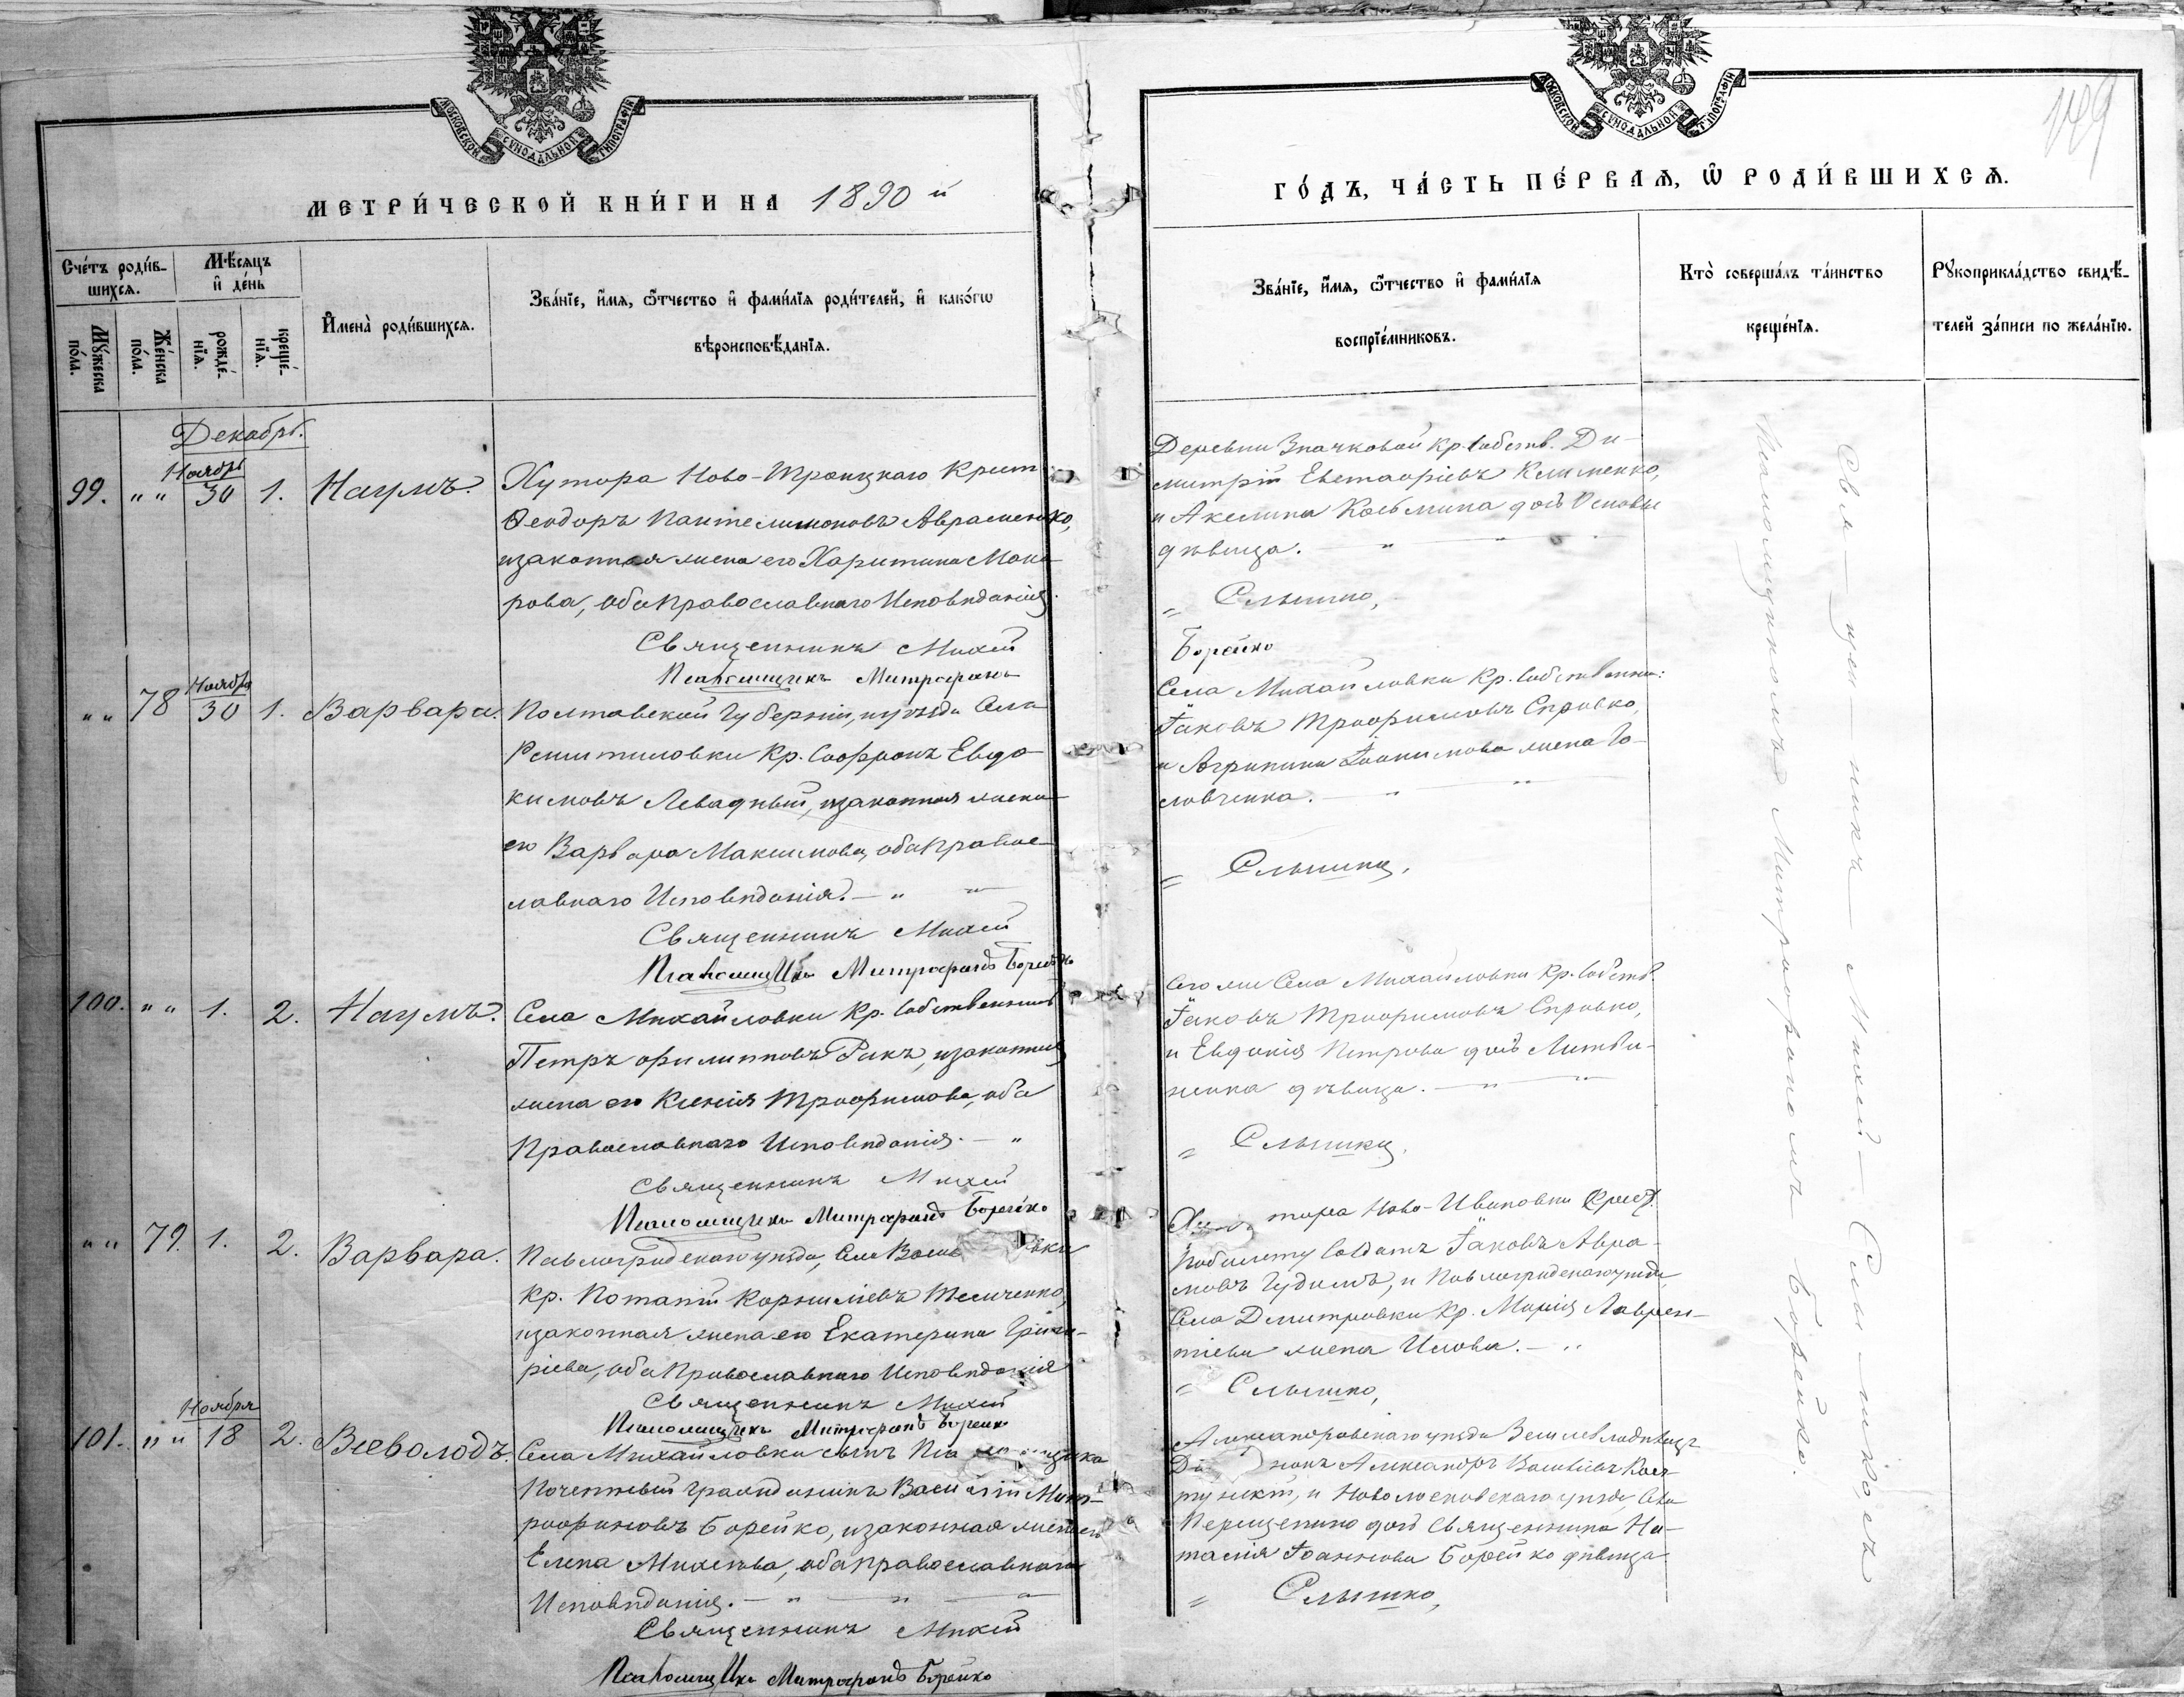 МОСКОВСКОЙ СѴНОДАЛЬНОЙ ТИПОГРАФІИ
МЕТРИ́ЧЕСКОЙ КНИ́ГИ НА 1890 й
Сче́тъ роди́в-
шихсѧ.
Мꙋ́жеска
по́ла.
Же́нска
по́ла.
Мѣ́сѧцъ
и҆ де́нь
рожде́-
нїѧ.
креще́-
нїѧ.
И҆мена̀ роди́вшихсѧ.
Зва́нїе, и҆́мѧ, ѻ҆́тчество и҆ фами́лїѧ роди́телей, и҆ како́гѡ
вѣроисповѣ́данїѧ.
Декабрь.
99. " " Ноябрь 30 1. Наумъ.
Хутора Ново-Троицкаго Крест
Ѳеодоръ Пантелимоновъ Авраменко,
изаконная жена его Харитина Мака-
рова, оба православнаго Исповѣданія.
Священникъ Михей
Псаломщикъ Митрофанъ
" " 78 Ноябрь 30 1. Варвара.
Полтавской Губерніи, уѣзда Села
Решетиловки Кр. Софронъ Евдо-
кимовъ Левадный, изаконная жена
его Варвара Максимова, оба правос-
лавнаго Исповѣданія. — "
Священникъ Михей
Псаломщикъ Митрофанъ Борейко
100. " " 1. 2. Наумъ.
Села Михайловки Кр. Собственникъ
Петръ Филипповъ Ракъ, изаконная
жена его Ксенія Трофимова, оба
Православнаго Исповѣданія. — "
Священникъ Михей
Псаломщикъ Митрофанъ Борейко
" " 79. 1. 2. Варвара.
Павлоградскаго уѣзда, Села
Кр. Потапій Корниліевъ
изаконная жена его Екатерина Григо-
ріева, оба Православнаго Исповѣданія
Священникъ Михей
Псаломщикъ Митрофанъ Борейко
101. " " Ноября 18 2. Всеволодъ.
Села Михайловки сынъ Псаломщика
Почетный Гражданинъ Василій Мит-
рофановъ Борейко, изаконная жена его
Елена Михеева, оба православнаго
Исповѣданія. — " — " — "
Священникъ Михей
Псаломщикъ Митрофанъ Борейко
МОСКОВСКОЙ СѴНОДАЛЬНОЙ ТИПОГРАФІИ
ГО́ДЪ, ЧА́СТЬ ПЕ́РВАѦ, Ѡ РОДИ́ВШИХСѦ.
Зва́нїе, и҆́мѧ, ѻ҆́тчество и҆ фами́лїѧ
воспрїе́мниковъ.
Кто̀ соверша́лъ та́инство
креще́нїѧ.
Рꙋкоприкла́дство свидѣ́-
телей за́писи по жела́нїю.
Деревни Значковой Кр. Собств. Ди-
митрій Евстафіевъ Клименко,
и Акелина Козьмина дочь
дѣвица. — " "
" Слышко,
Борейко
Села Михайловки Кр. Собственни:
Іаковъ Трофимовъ
и Агрипина Іоакимова жена Го-
ловченка. — " "
" Слышко,
Сего же Села Михайловки Кр. Собств.
Іаковъ Трофимовъ
и Евдокія Петрова дочь Литви-
ненка дѣвица. — " "
" Слышко,
Хутора Ново-Ивановки
побилету Солдатъ Іаковъ Авра-
мовъ Гудимъ, и Павлоградскаго уѣзда,
Села Дмитровки Кр. Марія Лаврен-
тіева жена
" Слышко,
Александровскаго уѣзда Землевладѣлецъ
Александръ Василіевъ
и Новомосковскаго уѣзда, Села
Перещепино дочь Священника На-
талія Іоаннова Борейко дѣвица
" Слышко,
Свя-щен-никъ-Михей-Слышко, съ
Псаломщикомъ Митрофаномъ Борейко.